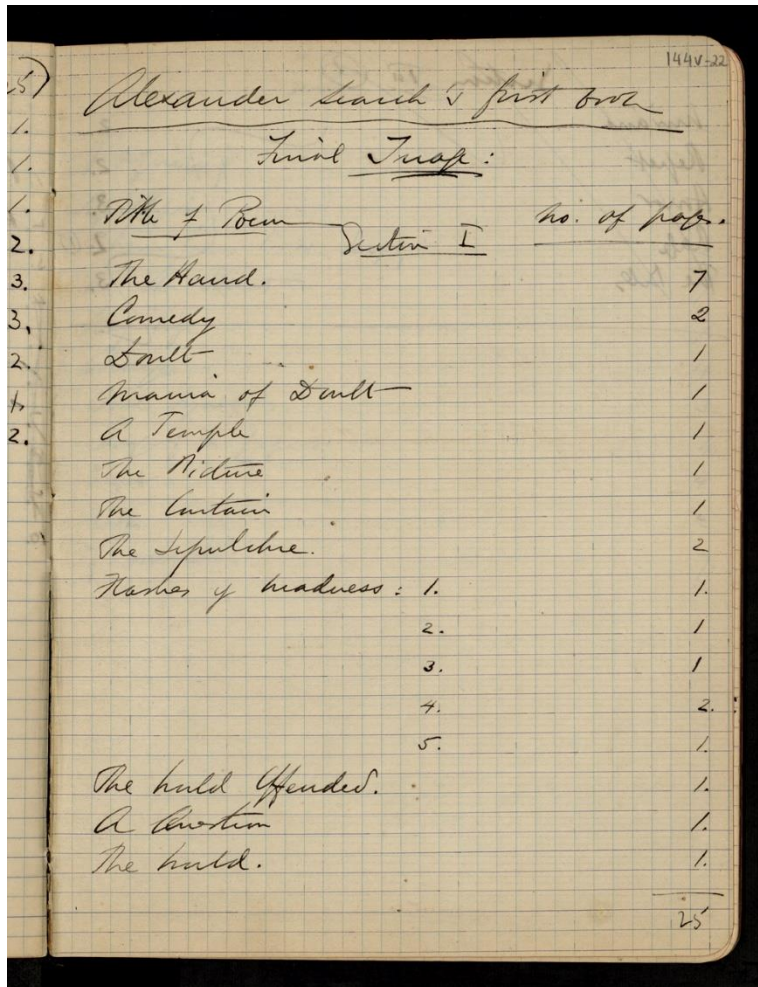 144V-22
Alexander Search's first book
Final Image:
Title of Poem no. of pages.
Section I
5)
1.
1.
1.
2.
3.
3.
2.
1.
2.
The Hand. 7
Comedy 2
Doubt 1
Mania of Doubt 1
A Temple 1
The Picture 1
The Curtain 1
The Sepulchre. 2
Flashes of Madness: 1. 1.
2. 1
3. 1
4. 2.
5. 1.
The World Offended. 1.
A Question 1.
The World. 1.
25